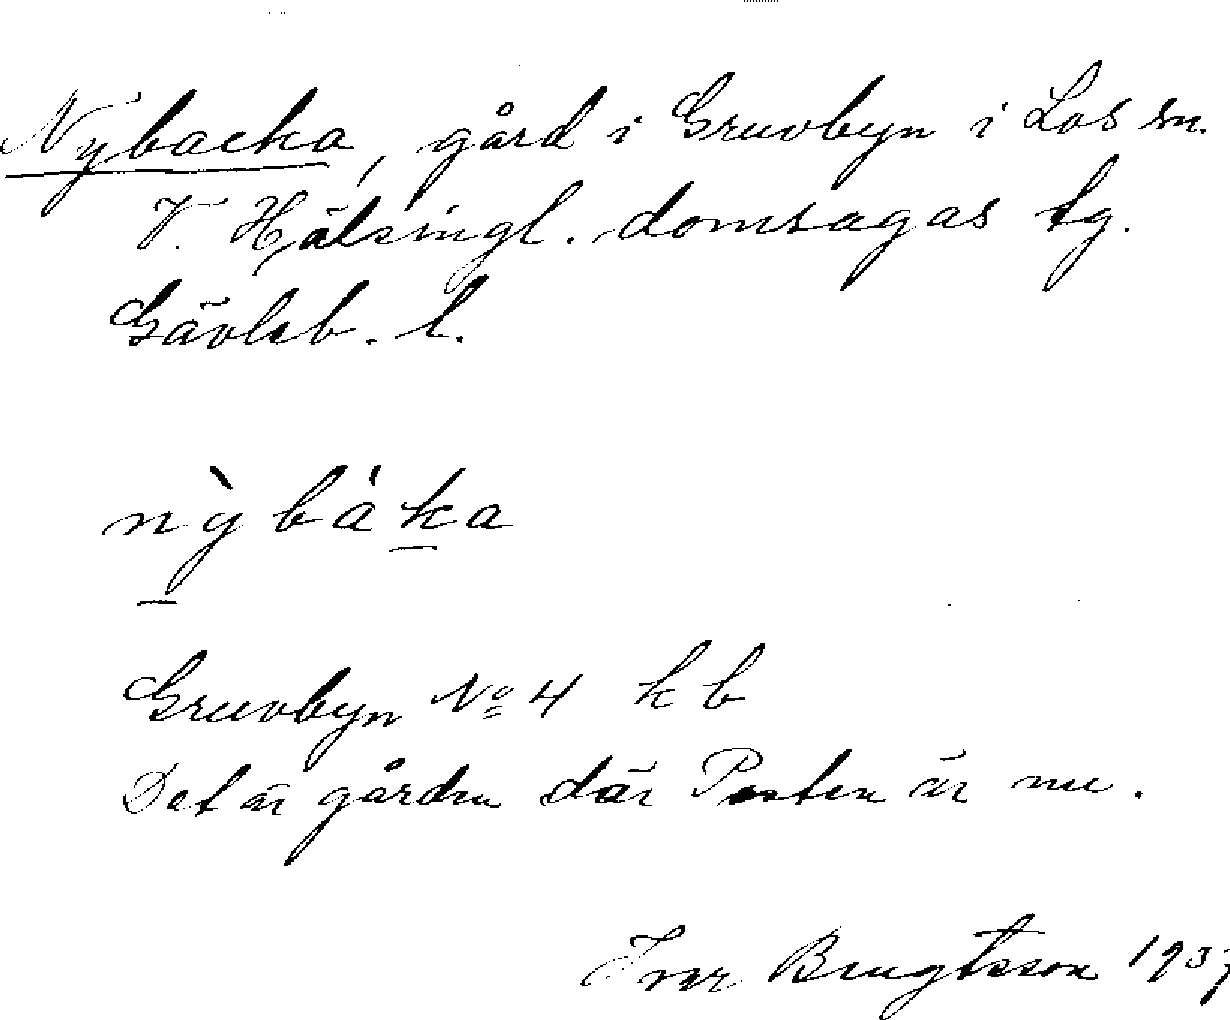 Nybacka, gård i Gruvbyn i Los sn.
V. Hälsingl. domsagas tg.
Gävleb. l.
nỳbáka
Gruvbyn No 4 kb
Det är gården där Posten är nu.
Ivar Bengtsson 1937